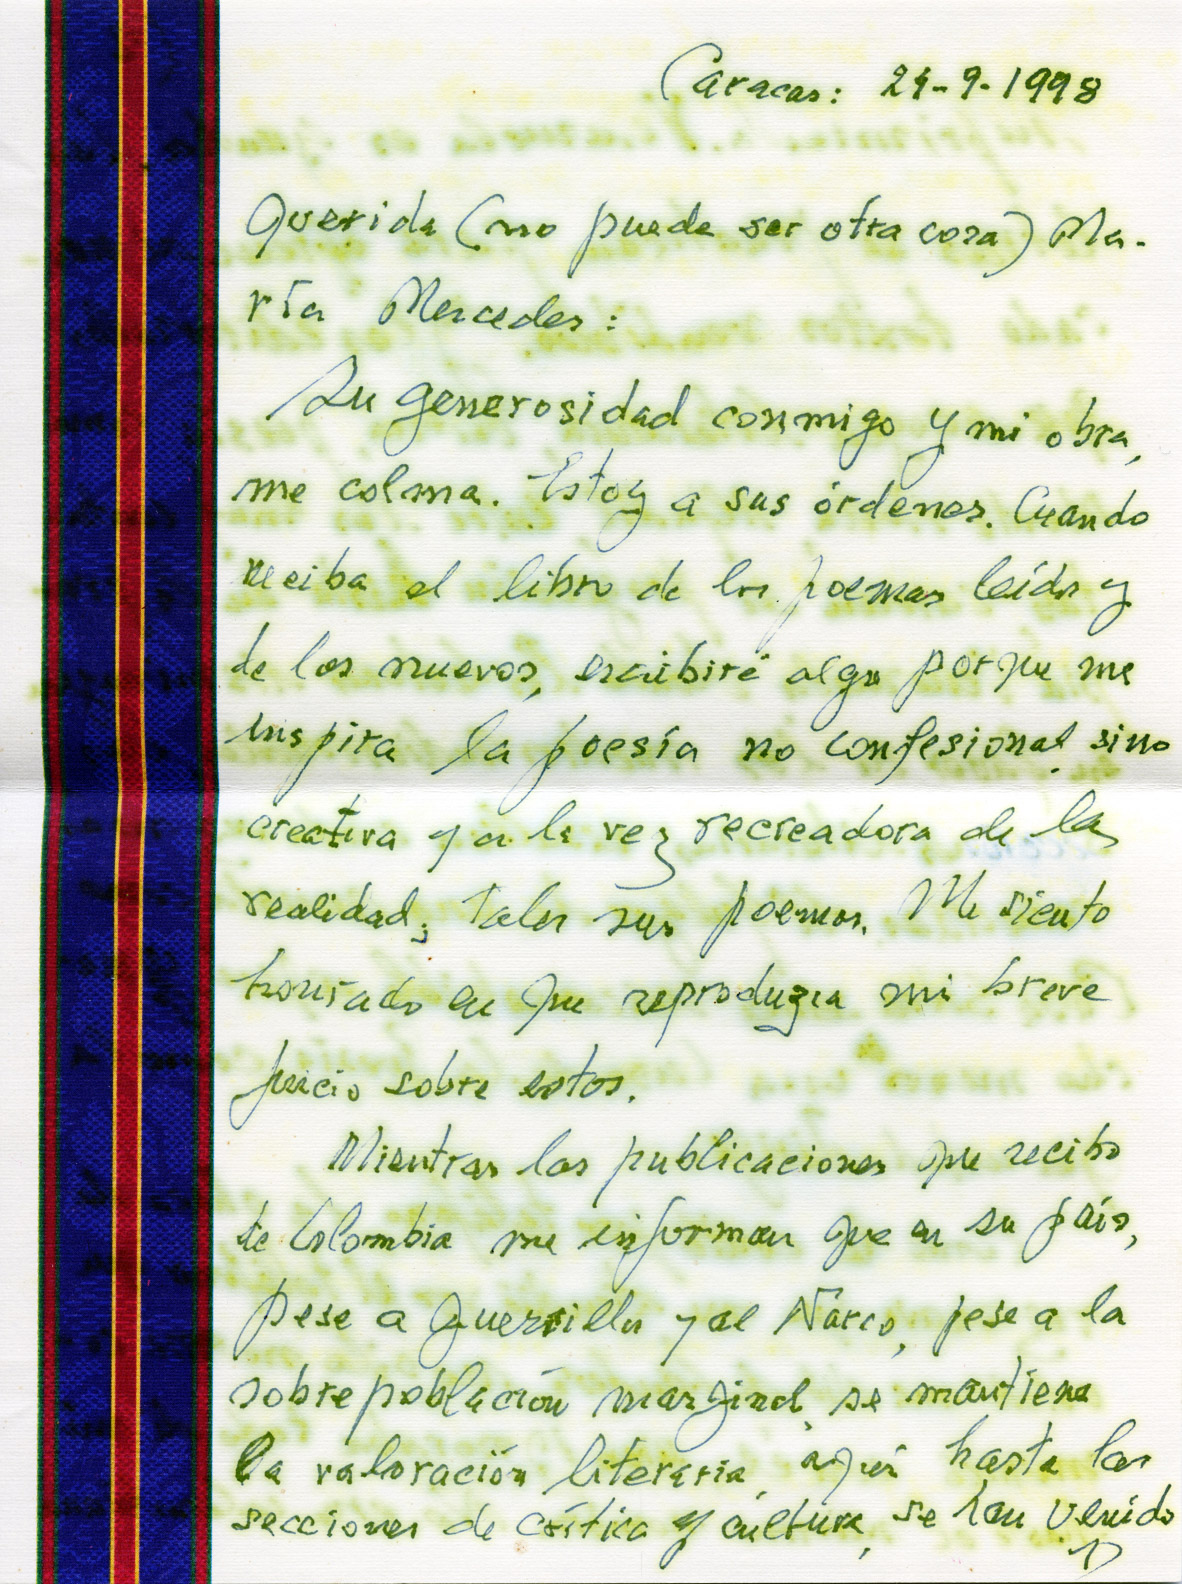 Caracas: 24-9-1998
Querida (no puede ser otra cosa) Ma-
ría Mercedes:
Su generosidad conmigo y mi obra,
me colma. Estoy a sus órdenes. Cuando
reciba el libro de los poemas leídos y
de los nuevos, escribiré algo porque me
inspira la poesía no confesional, sino
creativa y a la vez recreadora de la
realidad; tales sus poemas. Me siento
honrado en que reproduzca mi breve
juicio sobre estos.
Mientras las publicaciones que recibo
de Colombia me informan que en su país,
pese a guerrilla y al Narco, pese a la
sobrepoblación marginal, se mantiene
la valoración literaria, aquí hasta las
secciones de crítica y cultura, se han venido